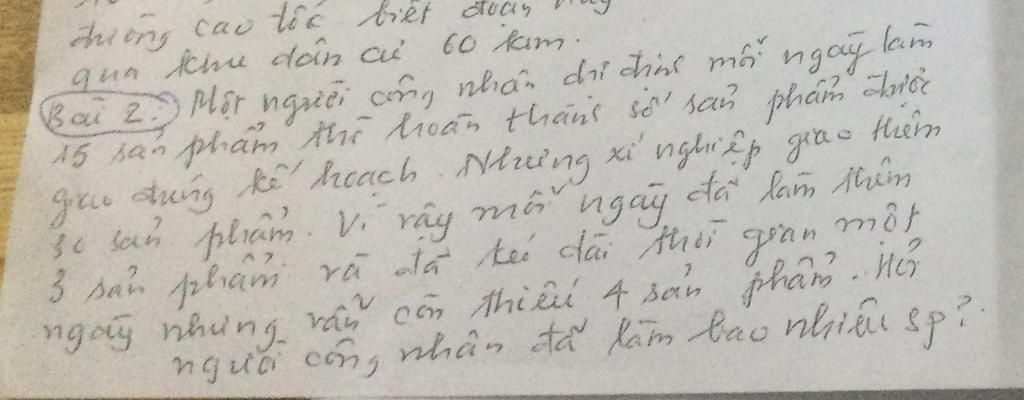 đường cao tốc biết đoạn này
qua khu dân cư 60 km.
Bài 2: Một người công nhân chỉ định mỗi ngày làm
15 sản phẩm thì hoàn thành số sản phẩm được
giao đúng kế hoạch. Nhưng xí nghiệp giao thêm
30 sản phẩm. Vì vậy mỗi ngày đã làm thêm
3 sản phẩm và đã kéo dài thời gian một
ngày nhưng vẫn còn thiếu 4 sản phẩm. Hỏi
người công nhân đã làm bao nhiêu sp?